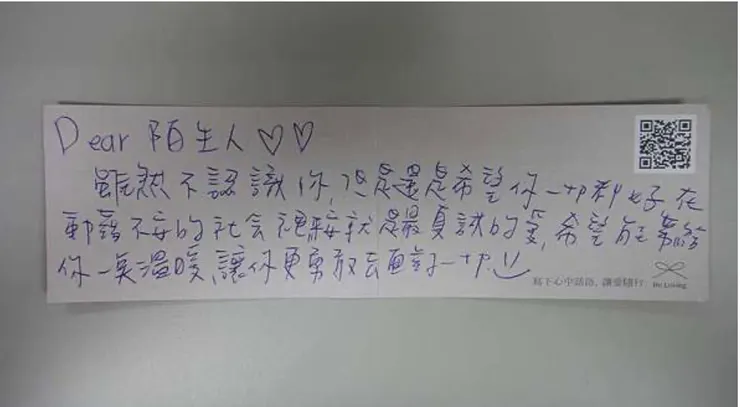 Dear 陌生人♡♡
雖然不認識你,但是還是希望你一切都好在
動蕩不安的社会裡擁抱就是最真誠的愛,希望能帶給
你一点溫暖,讓你更勇敢去面對一切
寫下心中話語,讓愛隨行 Be Loving